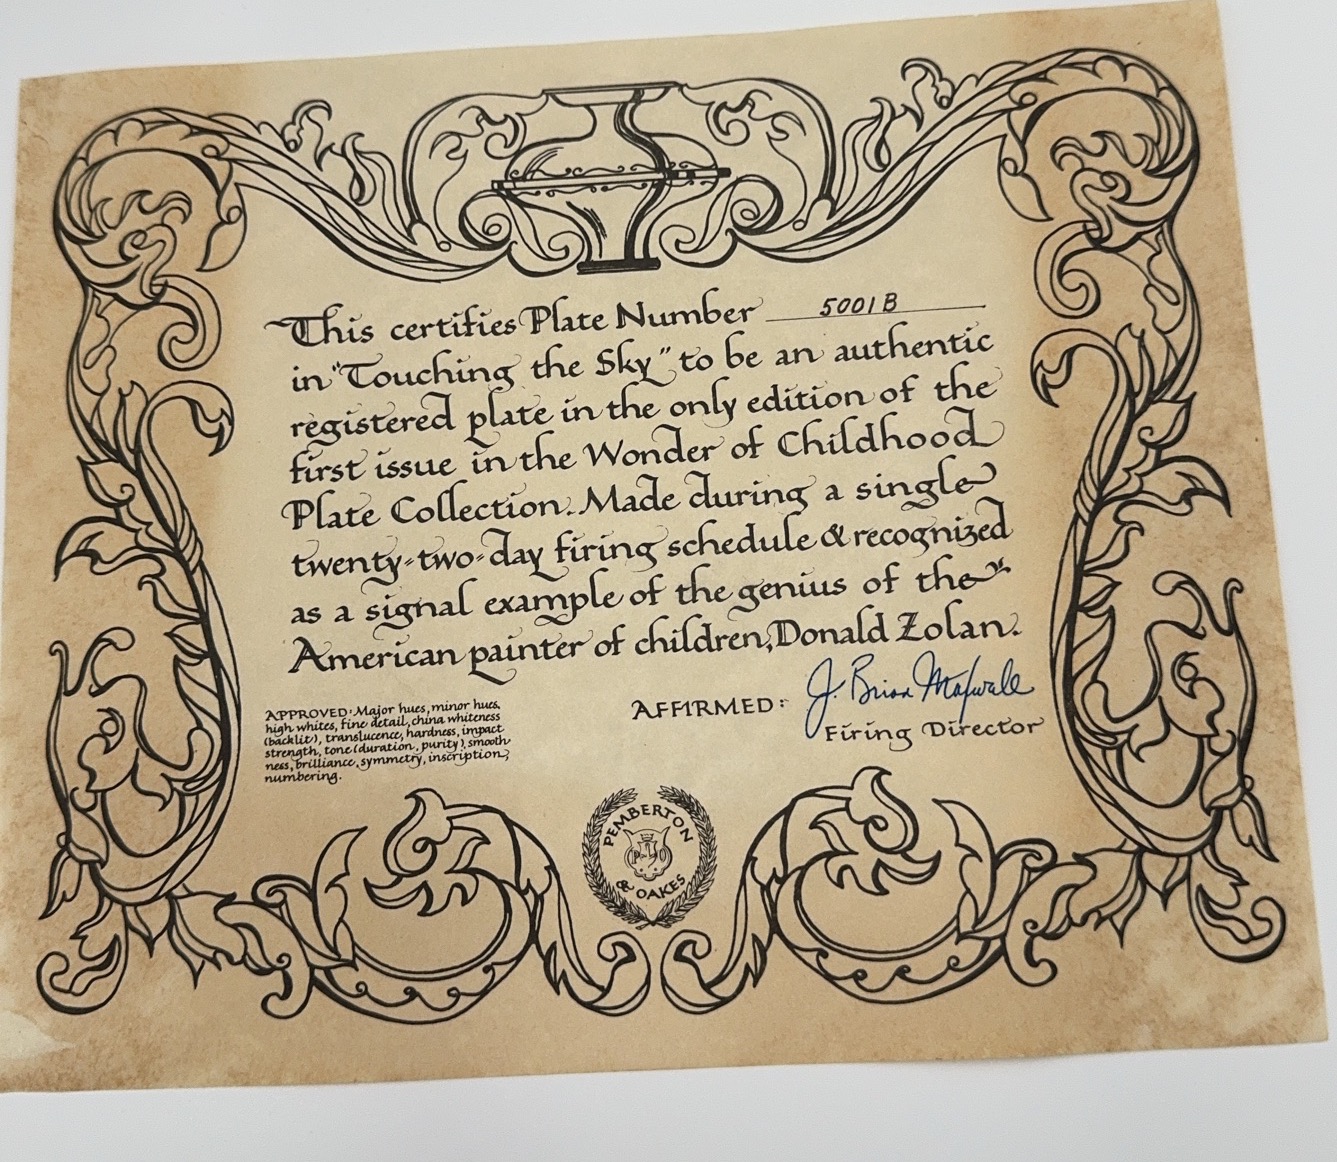 This certifies Plate Number 5001B
in "Touching the Sky" to be an authentic
registered plate in the only edition of the
first issue in the Wonder of Childhood
Plate Collection. Made during a single
twenty-two-day firing schedule & recognized
as a signal example of the genius of the
American painter of children, Donald Zolan.
APPROVED: Major hues, minor hues,
high whites, fine detail, china whiteness
(backlit), translucence, hardness, impact
strength, tone (duration, purity), smooth
ness, brilliance, symmetry, inscription,
numbering.
AFFIRMED: J. Brian
Firing Director
PEMBERTON
P & O
& OAKES